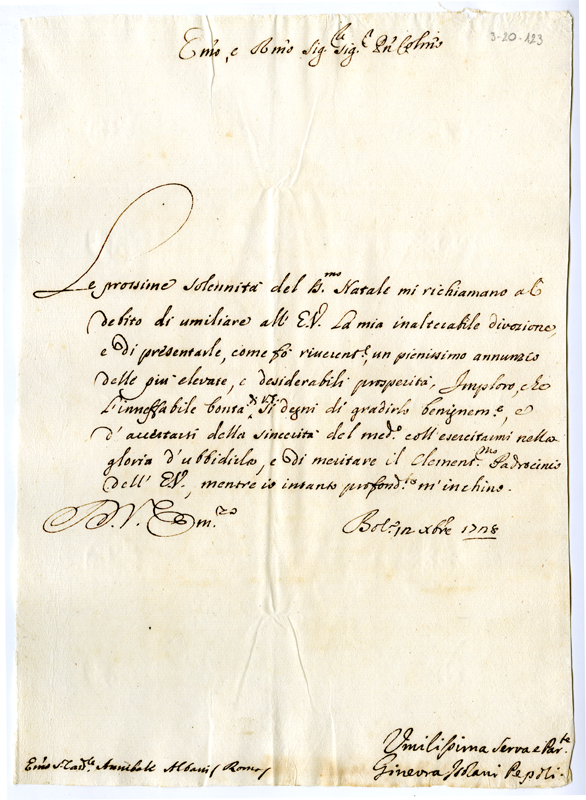 3-20-123
Emo, e Rmo Sig.re Sig.r Pn Colmo
Le prossime solennità del S.mo Natale mi richiamano al
debito di umiliare all' E.V. la mia inalterabile divozione,
e di presentarle, come fò riverent.e, un pienissimo annunzio
delle più elevate, e desiderabili prosperità, Imploro, che
l'ineffabile bontà di V.E. si degni di gradirlo benignem.e, e
d'accertarsi della sincerità del med.o coll'esercitarmi nella
gloria d'ubbidirla, e di meritare il Clement.mo Padrocinio
dell' E.V., mentre io intanto profond.te m'inchino.
D. V. Em.za
Bol.a 12 Xbre 1728
Umilissima Serva e Par.te
Ginevra Isolani Pepoli.
Emo Sr Card.le Annibale Albani / Roma /